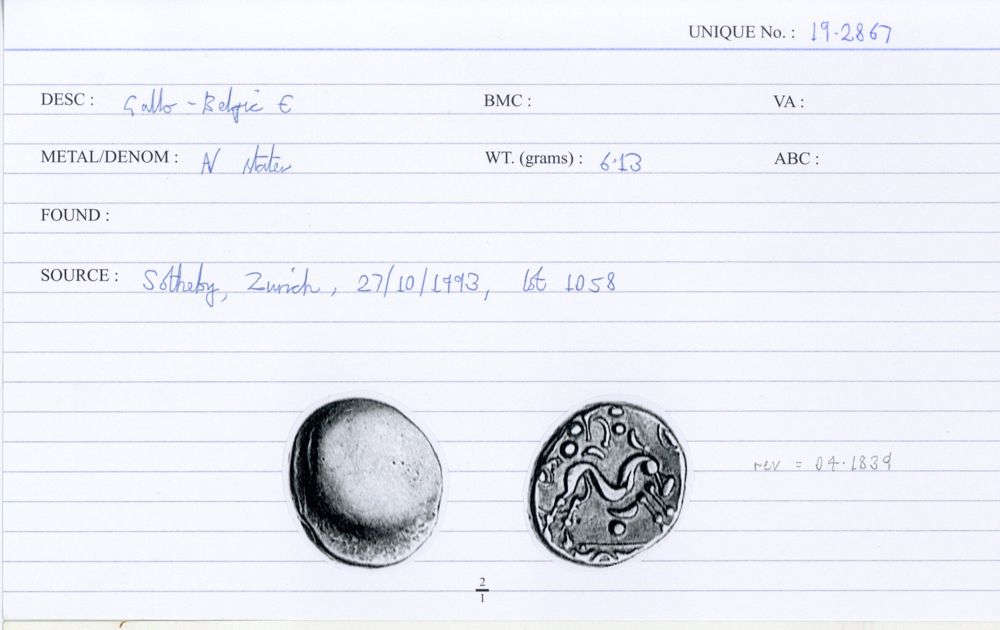 UNIQUE No. : 19·2867
DESC : Gallo-Belgic E BMC : VA :
METAL/DENOM : AV stater WT. (grams) : 6·13 ABC :
FOUND :
SOURCE : Sotheby, Zurich, 27/10/1993, lot 1058
rev = 04·1839
2
1